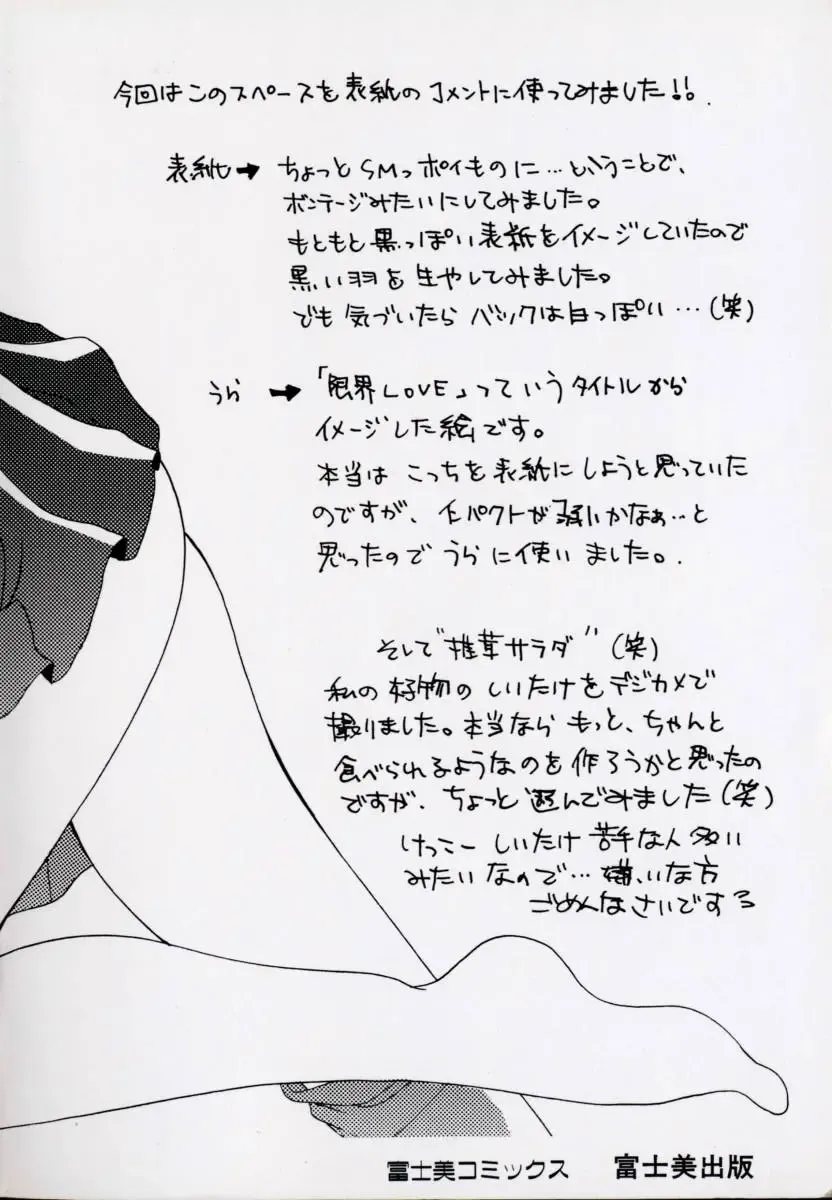 今回はこのスペースを表紙のコメントに使ってみました!!
表紙→ ちょっとSMっポイものに…ということで、
ボンテージみたいにしてみました。
もともと黒っぽい表紙をイメージしていたので
黒い羽を生やしてみました。
でも気づいたらバックは白っぽい…(笑)
うら→「限界LOVE」っていうタイトルから
イメージした絵です。
本当はこっちを表紙にしようと思っていた
のですが、インパクトが弱いかなぁ…と
思ったのでうらに使いました。
そして"椎茸サラダ"(笑)
私の好物のしいたけをデジカメで
撮りました。本当ならもっと、ちゃんと
食べられるようなのを作ろうかと思ったの
ですが、ちょっと遊んでみました(笑)
けっこーしいたけ苦手な人多い
みたいなので…嫌いな方
ごめんなさいですぅ
富士美コミックス 富士美出版